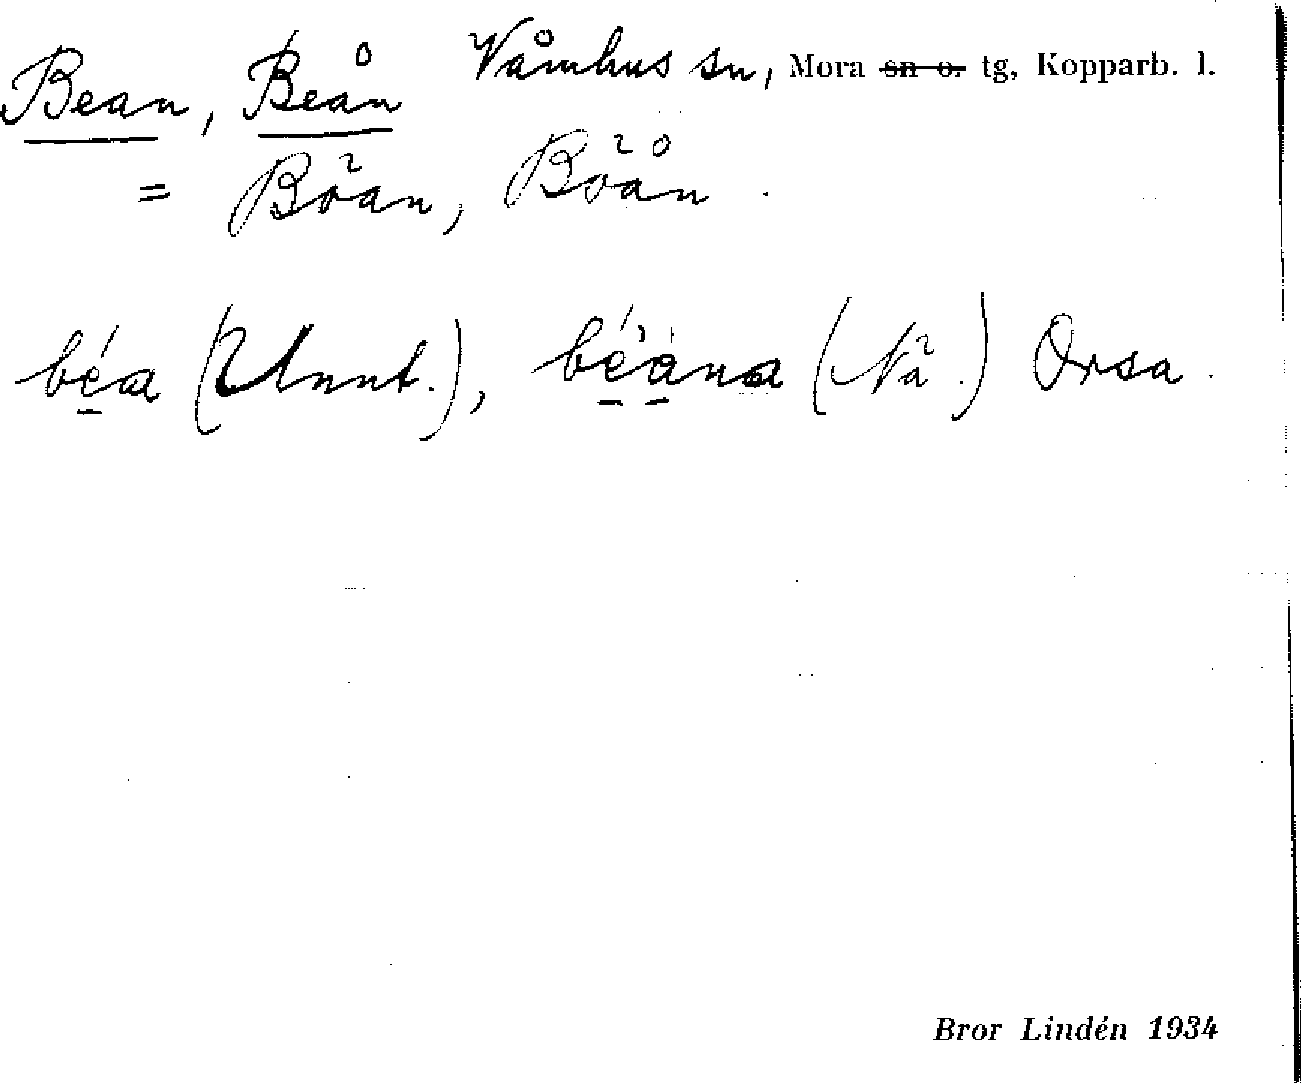 Bean, Beån Våmhus sn, Mora sn o. tg, Kopparb. l.
= Böan, Böån.
béa (Unnt.), béåna (Nä.) Orsa.
Bror Lindén 1934